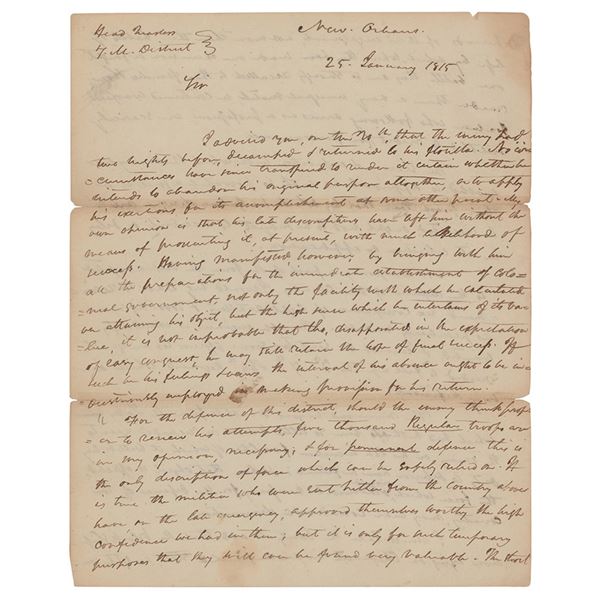 Head Quarters
7. M. District
New Orleans.
25. January 1815
Sir
I advised you, on the 20th, that the enemy had
two nights before, decamped & returned to his flotilla. No cir
=cumstances have since transpired to render it certain whether he
intends to abandon his original purpose altogether, or to apply
his exertions for its accomplishment at some other point. My
own opinion is that his late discomfitures have left him without the
means of prosecuting it, at present, with much likelihood of
success. Having manifested, however, by bringing with him
all the preparations for the immediate establishment of Colo=
=nial government, not only the facility with which he calculated
on attaining his object, but the high sense which he entertains of its va=
lue, it is not improbable that tho, disappointed in the expectation
of easy conquest, he may still retain the hope of final success. If
such be his feelings & views the interval of his absence ought to be in=
dustriously employed in making provision for his return.
For the defence of this district, should the enemy think prop=
=er to renew his attempts, five thousand Regular troops are
in my opinion, necessary; & for permanent defence this is
the only description of force which can be safely relied on. It
is true the militia who were sent hither from the country above
have on the late emergency, approved themselves worthy the high
confidence we had in them; but it is only for such temporary
purposes that they will ever be found very valuable. The short